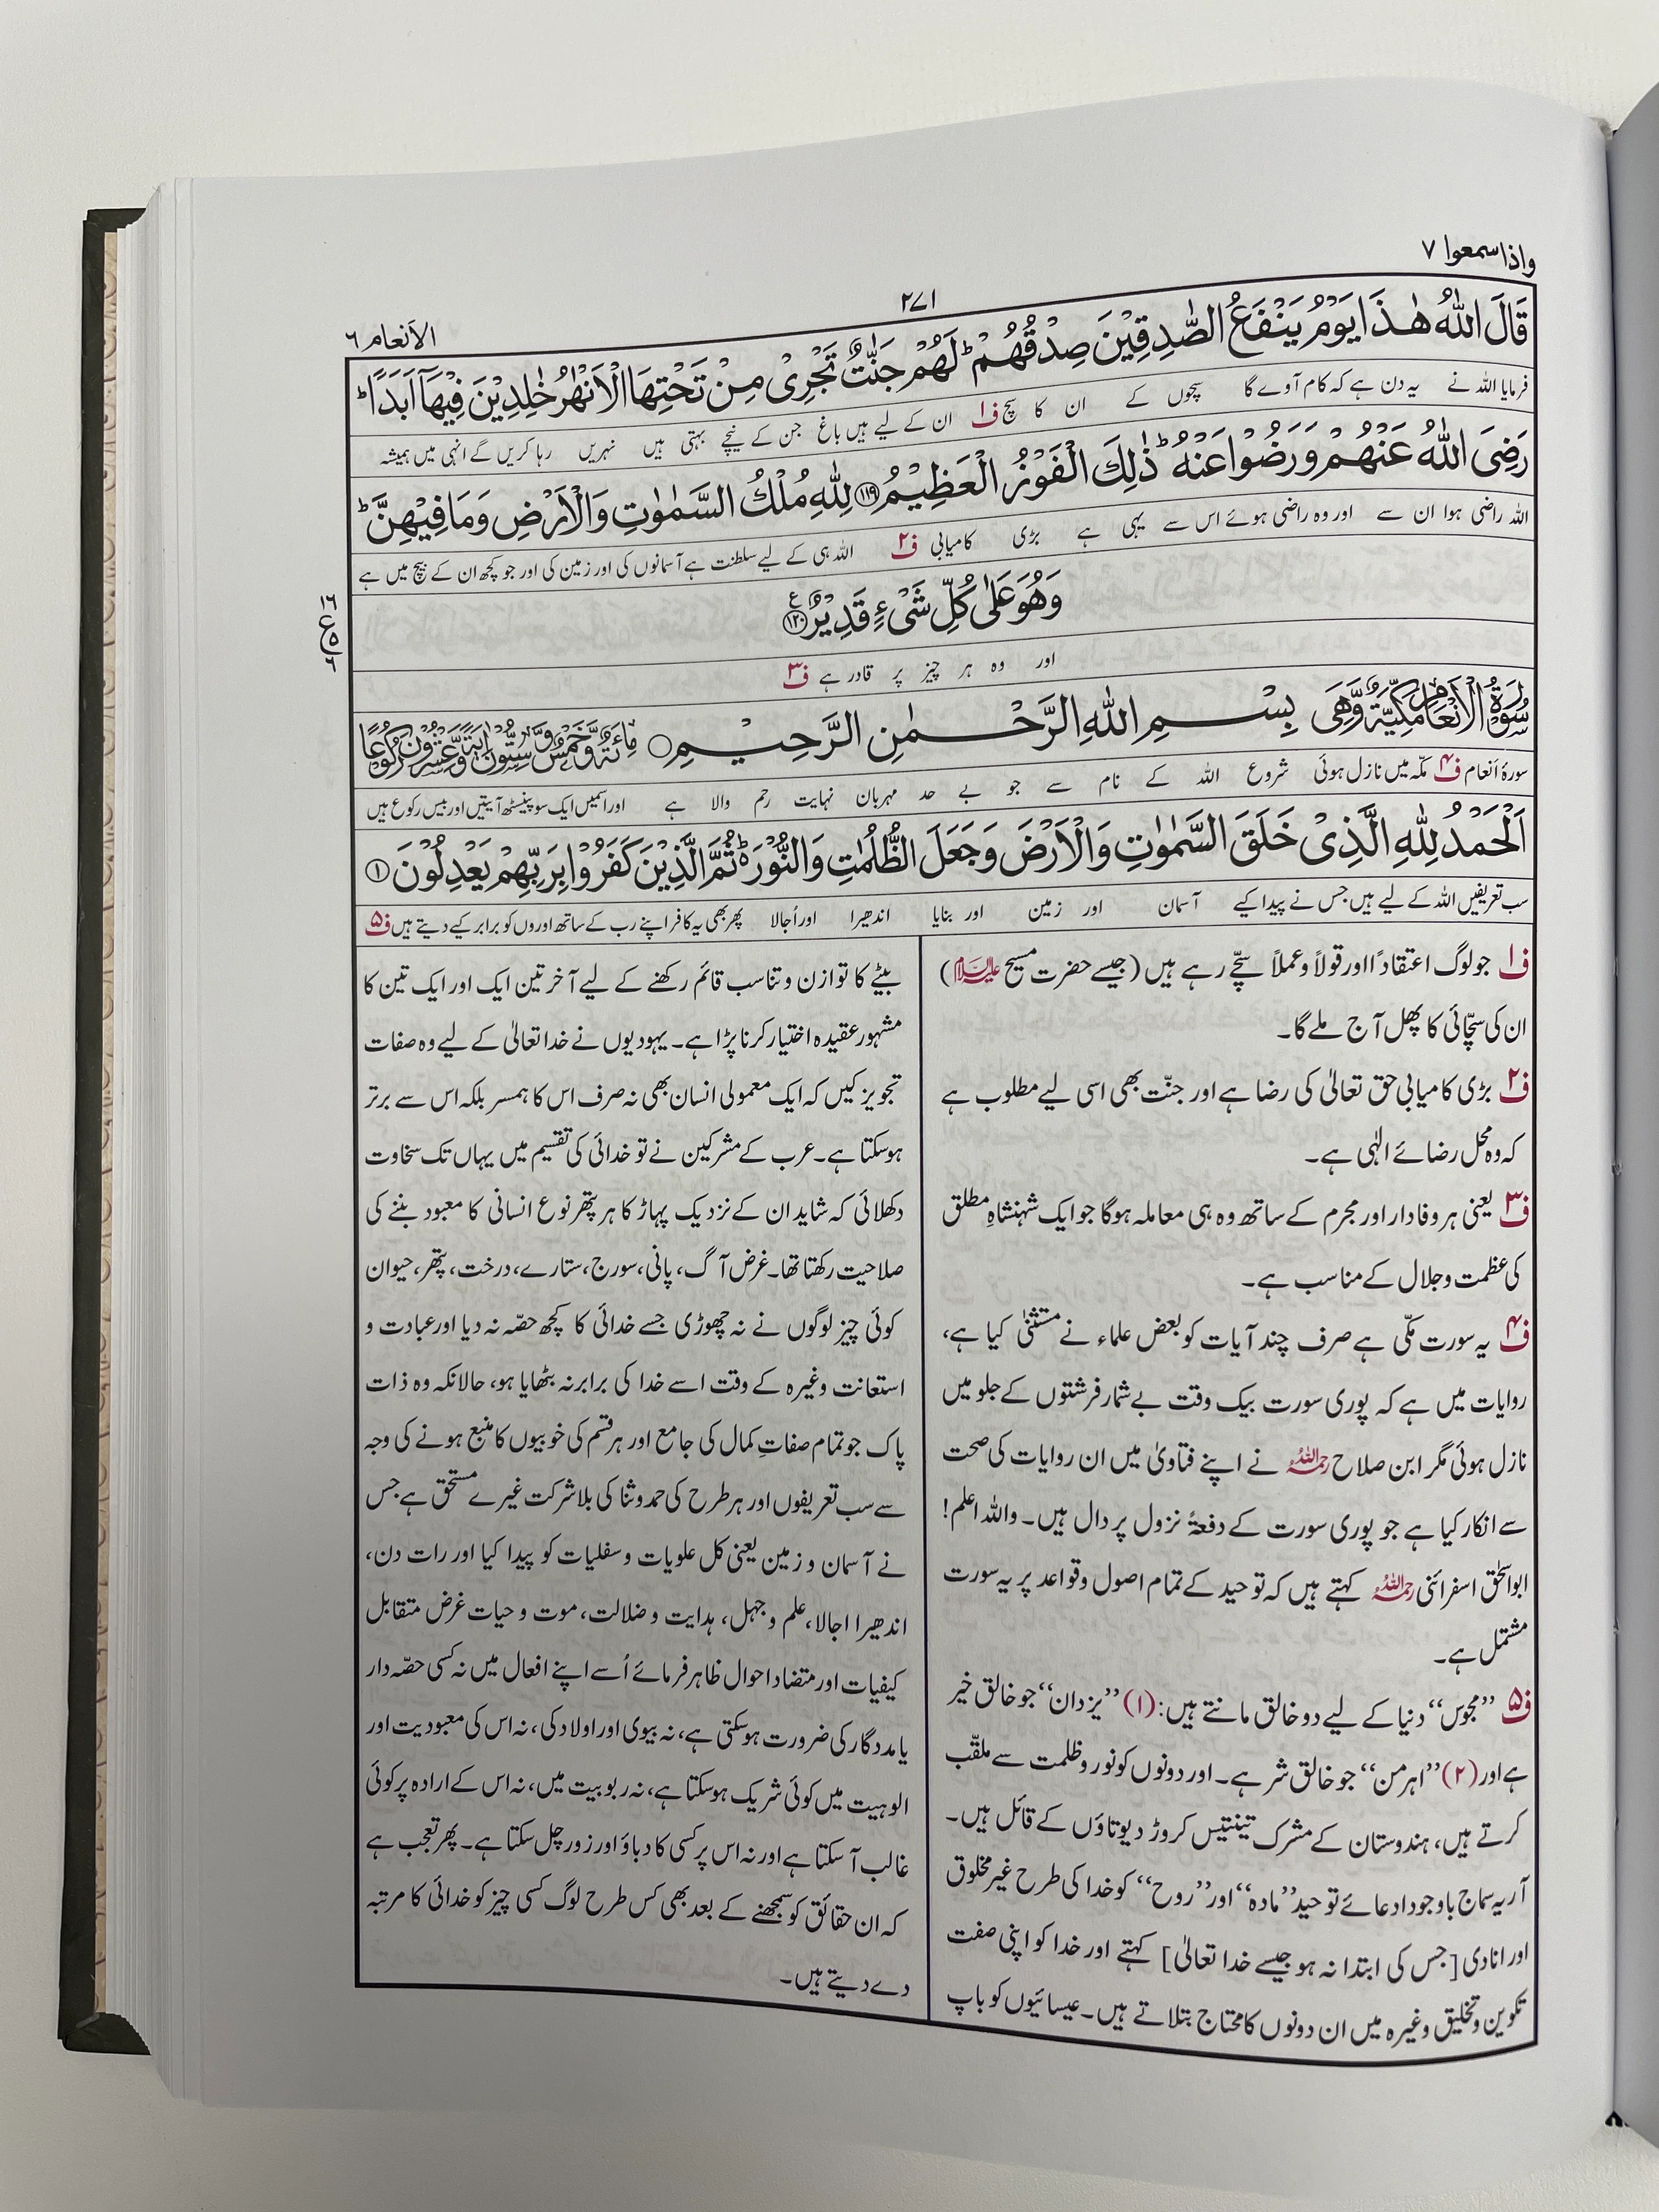 واذاسمعوا ۷
۲۷۱
الانعام ۶
قَالَ اللّٰهُ هٰذَا يَوْمُ يَنْفَعُ الصّٰدِقِيْنَ صِدْقُهُمْ ؕ لَهُمْ جَنّٰتٌ تَجْرِيْ مِنْ تَحْتِهَا الْاَنْهٰرُ خٰلِدِيْنَ فِيْهَاۤ اَبَدًا ؕ
فرمایا اللہ نے یہ دن ہے کہ کام آوے گا سچوں کے ان کا سچ ف۱ ان کے لیے ہیں باغ جن کے نیچے بہتی ہیں نہریں رہا کریں گے انہی میں ہمیشہ
رَضِيَ اللّٰهُ عَنْهُمْ وَرَضُوْا عَنْهُ ؕ ذٰلِكَ الْفَوْزُ الْعَظِيْمُ ﴿۱۱۹﴾ لِلّٰهِ مُلْكُ السَّمٰوٰتِ وَالْاَرْضِ وَمَا فِيْهِنَّ ؕ
اللہ راضی ہوا ان سے اور وہ راضی ہوئے اس سے یہی ہے بڑی کامیابی ف۲ اللہ ہی کے لیے سلطنت ہے آسمانوں کی اور زمین کی اور جو کچھ ان کے بیچ میں ہے
وَهُوَ عَلٰى كُلِّ شَيْءٍ قَدِيْرٌ ﴿۱۲۰﴾ ع
اور وہ ہر چیز پر قادر ہے ف۳
سُوْرَةُ الْاَنْعَامِ مَكِّيَّةٌ وَّهِيَ بِسْمِ اللّٰهِ الرَّحْمٰنِ الرَّحِيْمِ ○ مِائَةٌ وَّخَمْسٌ وَّسِتُّوْنَ اٰيَةً وَّعِشْرُوْنَ رُكُوْعًا
سورۂ انعام ف۴ مکّہ میں نازل ہوئی شروع اللہ کے نام سے جو بے حد مہربان نہایت رحم والا ہے اور اسمیں ایک سو پینسٹھ آیتیں اور بیس رکوع ہیں
اَلْحَمْدُ لِلّٰهِ الَّذِيْ خَلَقَ السَّمٰوٰتِ وَالْاَرْضَ وَجَعَلَ الظُّلُمٰتِ وَالنُّوْرَ ؕ ثُمَّ الَّذِيْنَ كَفَرُوْا بِرَبِّهِمْ يَعْدِلُوْنَ ﴿۱﴾
سب تعریفیں اللہ کے لیے ہیں جس نے پیدا کیے آسمان اور زمین اور بنایا اندھیرا اور اُجالا پھر بھی یہ کافر اپنے رب کے ساتھ اوروں کو برابر کیے دیتے ہیں ف۵
ف۱ جو لوگ اعتقاداً اور قولاً و عملاً سچّے رہے ہیں (جیسے حضرت مسیح علیہ السلام)
ان کی سچّائی کا پھل آج ملے گا۔
ف۲ بڑی کامیابی حق تعالیٰ کی رضا ہے اور جنّت بھی اسی لیے مطلوب ہے
کہ وہ محل رضائے الٰہی ہے۔
ف۳ یعنی ہر وفادار اور مجرم کے ساتھ وہ ہی معاملہ ہوگا جو ایک شہنشاہِ مطلق
کی عظمت و جلال کے مناسب ہے۔
ف۴ یہ سورت مکّی ہے صرف چند آیات کو بعض علماء نے مستثنیٰ کیا ہے،
روایات میں ہے کہ پوری سورت بیک وقت بے شمار فرشتوں کے جلو میں
نازل ہوئی مگر ابن صلاح رحمہ اللہ نے اپنے فتاویٰ میں ان روایات کی صحت
سے انکار کیا ہے جو پوری سورت کے دفعۃً نزول پر دال ہیں۔ واللہ اعلم!
ابو اسحٰق اسفرائنی رحمہ اللہ کہتے ہیں کہ توحید کے تمام اصول و قواعد پر یہ سورت
مشتمل ہے۔
ف۵ ”مجوس“ دنیا کے لیے دو خالق مانتے ہیں: (۱) ”یزدان“ جو خالق خیر
ہے اور (۲) ”اہرمن“ جو خالق شر ہے۔ اور دونوں کو نور و ظلمت سے ملقّب
کرتے ہیں، ہندوستان کے مشرک تینتیس کروڑ دیوتاؤں کے قائل ہیں۔
آریہ سماج باوجود ادعائے توحید ”مادہ“ اور ”روح“ کو خدا کی طرح غیر مخلوق
اور انادی [جس کی ابتدا نہ ہو جیسے خدا تعالیٰ] کہتے اور خدا کو اپنی صفت
تکوین و تخلیق وغیرہ میں ان دونوں کا محتاج بتلاتے ہیں۔ عیسائیوں کو باپ
بیٹے کا توازن و تناسب قائم رکھنے کے لیے آخر تین ایک اور ایک تین کا
مشہور عقیدہ اختیار کرنا پڑا ہے۔ یہودیوں نے خدا تعالیٰ کے لیے وہ صفات
تجویز کیں کہ ایک معمولی انسان بھی نہ صرف اس کا ہمسر بلکہ اس سے برتر
ہوسکتا ہے۔ عرب کے مشرکین نے تو خدائی کی تقسیم میں یہاں تک سخاوت
دکھلائی کہ شاید ان کے نزدیک پہاڑ کا ہر پتھر نوع انسانی کا معبود بننے کی
صلاحیت رکھتا تھا۔ غرض آگ، پانی، سورج، ستارے، درخت، پتھر، حیوان
کوئی چیز لوگوں نے نہ چھوڑی جسے خدائی کا کچھ حصّہ نہ دیا اور عبادت و
استعانت وغیرہ کے وقت اسے خدا کی برابر نہ بٹھایا ہو، حالانکہ وہ ذات
پاک جو تمام صفاتِ کمال کی جامع اور ہر قسم کی خوبیوں کا منبع ہونے کی وجہ
سے سب تعریفوں اور ہر طرح کی حمد و ثنا کی بلا شرکت غیرے مستحق ہے جس
نے آسمان و زمین یعنی کل علویات و سفلیات کو پیدا کیا اور رات دن،
اندھیرا اجالا، علم و جہل، ہدایت و ضلالت، موت و حیات غرض متقابل
کیفیات اور متضاد احوال ظاہر فرمائے اُسے اپنے افعال میں نہ کسی حصّہ دار
یا مددگار کی ضرورت ہوسکتی ہے، نہ بیوی اور اولاد کی، نہ اس کی معبودیت اور
الوہیت میں کوئی شریک ہوسکتا ہے، نہ ربوبیت میں، نہ اس کے ارادہ پر کوئی
غالب آ سکتا ہے اور نہ اس پر کسی کا دباؤ اور زور چل سکتا ہے۔ پھر تعجب ہے
کہ ان حقائق کو سمجھنے کے بعد بھی کس طرح لوگ کسی چیز کو خدائی کا مرتبہ
دے دیتے ہیں۔